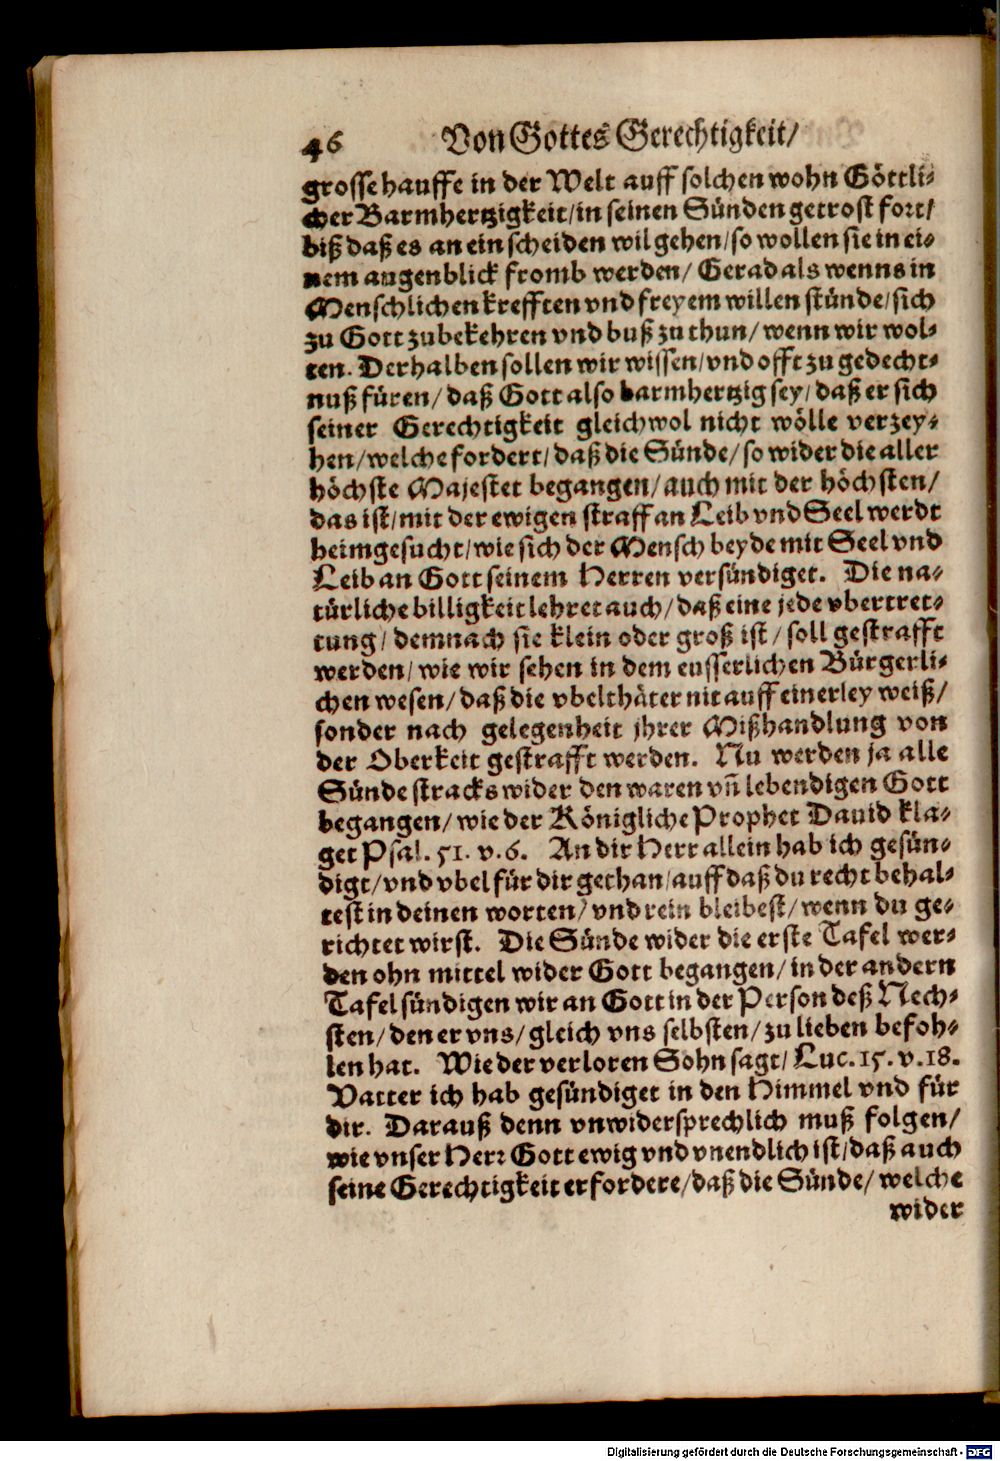 46 Von Gottes Gerechtigkeit/
grosse hauffe in der Welt auff solchen wohn Göttli-
cher Barmhertzigkeit/ in seinen Sünden getrost fort/
biß daß es an ein scheiden wil gehen/ so wollen sie in ei-
nem augenblick fromb werden/ Gerad als wenns in
Menschlichen krefften vnd freyem willen stünde/ sich
zu Gott zubekehren vnd buß zu thun/ wenn wir wol-
ten. Derhalben sollen wir wissen/ vnd offt zu gedecht-
nuß füren/ daß Gott also barmhertzig sey/ daß er sich
seiner Gerechtigkeit gleichwol nicht wölle verzey-
hen/ welche fordert/ daß die Sünde/ so wider die aller
höchste Majestet begangen/ auch mit der höchsten/
das ist/ mit der ewigen straff an Leib vnd Seel werdt
heimgesucht/ wie sich der Mensch beyde mit Seel vnd
Leib an Gott seinem Herren versündiget. Die na-
türliche billigkeit lehret auch/ daß eine jede vbertret-
tung/ demnach sie klein oder groß ist/ soll gestrafft
werden/ wie wir sehen in dem eusserlichen Bürgerli-
chen wesen/ daß die vbelthäter nit auff einerley weiß/
sonder nach gelegenheit jhrer Mißhandlung von
der Oberkeit gestrafft werden. Nu werden ja alle
Sünde stracks wider den waren vñ lebendigen Gott
begangen/ wie der Königliche Prophet Dauid kla-
get Psal. 51. v. 6. An dir Herr allein hab ich gesün-
digt/ vnd vbel für dir gethan/ auff daß du recht behal-
test in deinen worten/ vnd rein bleibest/ wenn du ge-
richtet wirst. Die Sünde wider die erste Tafel wer-
den ohn mittel wider Gott begangen/ in der andern
Tafel sündigen wir an Gott in der Person deß Nech-
sten/ den er vns/ gleich vns selbsten/ zu lieben befoh-
len hat. Wie der verloren Sohn sagt/ Luc. 15. v. 18.
Vatter ich hab gesündiget in den Himmel vnd für
dir. Darauß denn vnwidersprechlich muß folgen/
wie vnser Herr Gott ewig vnd vnendlich ist/ daß auch
seine Gerechtigkeit erfordere/ daß die Sünde/ welche
wider
Digitalisierung gefördert durch die Deutsche Forschungsgemeinschaft - DFG